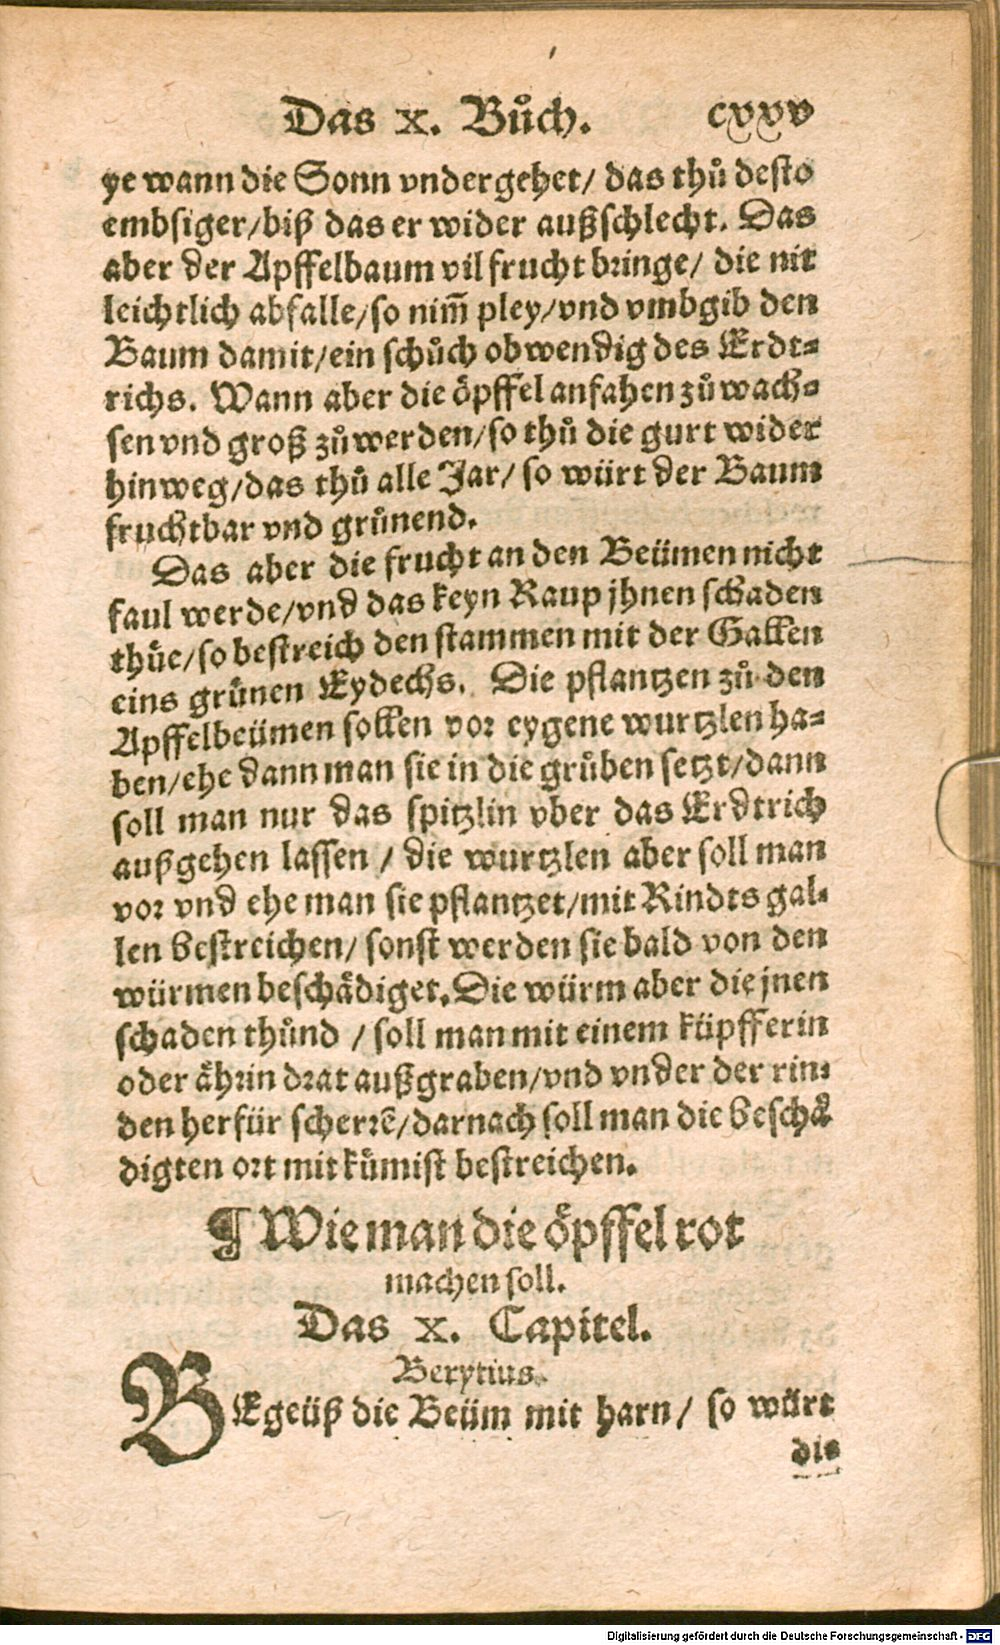 Das x. Bůch. cxxv
ye wann die Sonn vndergehet/ das thů desto
embsiger/biß das er wider außschlecht. Das
aber der Apffelbaum vil frucht bringe/ die nit
leichtlich abfalle/so nim̄ pley/vnd vmbgib den
Baum damit/ein schůch obwendig des Erdt⸗
richs. Wann aber die öpffel anfahen zů wach⸗
sen vnd groß zů werden/so thů die gurt wider
hinweg/das thů alle Jar/ so würt der Baum
fruchtbar vnd grůnend.
Das aber die frucht an den Beümen nicht
faul werde/vnd das keyn Raup jhnen schaden
thůe/so bestreich den stammen mit der Gallen
eins grůnen Eydechs. Die pflantzen zů den
Apffelbeümen sollen vor eygene wurtzlen ha⸗
ben/ehe dann man sie in die grůben setzt/dann
soll man nur das spitzlin vber das Erdtrich
außgehen lassen / die wurtzlen aber soll man
vor vnd ehe man sie pflantzet/mit Rindts gal⸗
len bestreichen/ sonst werden sie bald von den
würmen beschädiget. Die würm aber die jnen
schaden thůnd / soll man mit einem küpfferin
oder ährin drat außgraben/vnd vnder der rin⸗
den herfür scherrē/darnach soll man die beschä⸗
digten ort mit kůmist bestreichen.
¶ Wie man die öpffel rot
machen soll.
Das x. Capitel.
Berytius.
BEgeüß die Beüm mit harn/ so würt
die
Digitalisierung gefördert durch die Deutsche Forschungsgemeinschaft - DFG